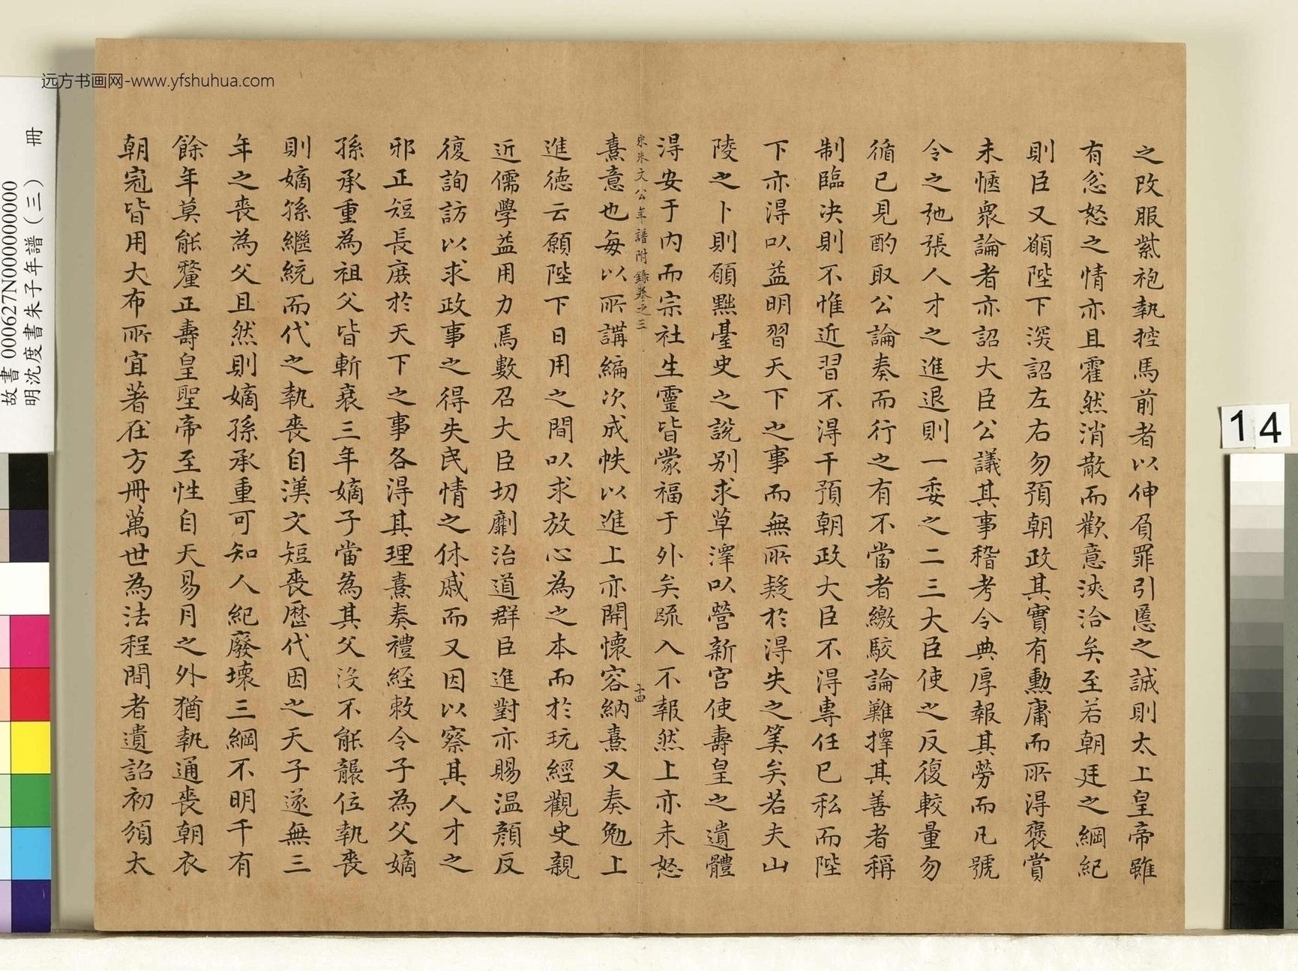 之改服紫袍執控馬前者以伸負罪引慝之誠則太上皇帝雖
有忿怒之情亦且霍然消散而歡意浹洽矣至若朝廷之綱紀
則臣又願陛下深詔左右勿預朝政其實有勲庸而所得褒賞
未愜衆論者亦詔大臣公議其事稽考令典厚報其勞而凡號
令之弛張人才之進退則一委之二三大臣使之反復較量勿
循已見酌取公論奏而行之有不當者繳駁論難擇其善者稱
制臨决則不惟近習不得干預朝政大臣不得專任已私而陛
下亦得以益明習天下之事而無所疑於得失之筭矣若夫山
陵之卜則願黜臺史之說别求草澤以營新宮使壽皇之遺體
得安于内而宗社生靈皆蒙福于外矣疏入不報然上亦未怒
宋朱文公年譜附錄卷之三
熹意也每以所講編次成帙以進上亦開懷容納熹又奏勉上
進德云願陛下日用之間以求放心為之本而於玩經觀史親
近儒學益用力焉數召大臣切劘治道群臣進對亦賜温顏反
復詢訪以求政事之得失民情之休戚而又因以察其人才之
邪正短長庻於天下之事各得其理熹奏禮經敕令子為父嫡
孫承重為祖父皆斬衰三年嫡子當為其父没不能襲位執喪
則嫡孫繼統而代之執喪自漢文短喪歷代因之天子遂無三
年之喪為父且然則嫡孫承重可知人紀廢壞三綱不明千有
餘年莫能釐正壽皇聖帝至性自天易月之外猶執通喪朝衣
朝冠皆用大布所宜著在方冊萬世為法程間者遺詔初頒太
远方书画网-www.yfshuhua.com
故書 000627N000000000
明沈度書朱子年譜(三) 冊
14